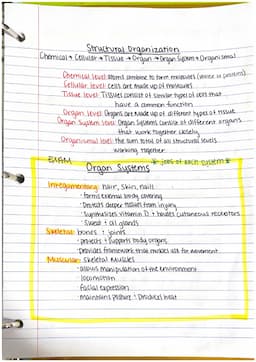 Structural Organization
Chemical → Cellular → Tissue → Organ → Organ System → Organismal
Chemical level: atoms combine to form molecules
Cellular level: cells are made up of molecules
Tissue level: Tissues consist of similar types of cells that
have a common function
Organ level: Organs are made up of different types of tissue
Organ System level: Organ Systems consist of different organs
that work together closely
Organismal level: the sum total of all structural levels
working together
EXAM
* jobs of each system *
Organ Systems
Integumentary: hair, skin, nails
· forms external body covering
· Protects deeper tissues from injury
· Synthesizes vitamin D + houses cutaneous receptors
· Sweat + oil glands
Skeletal: bones + joints
· protects + supports body organs
· Provides framework that muscles use for movement
Muscular: Skeletal Muscles
· allows manipulation of the environment
· locomotion
· facial expression
· Maintains posture + produces heat